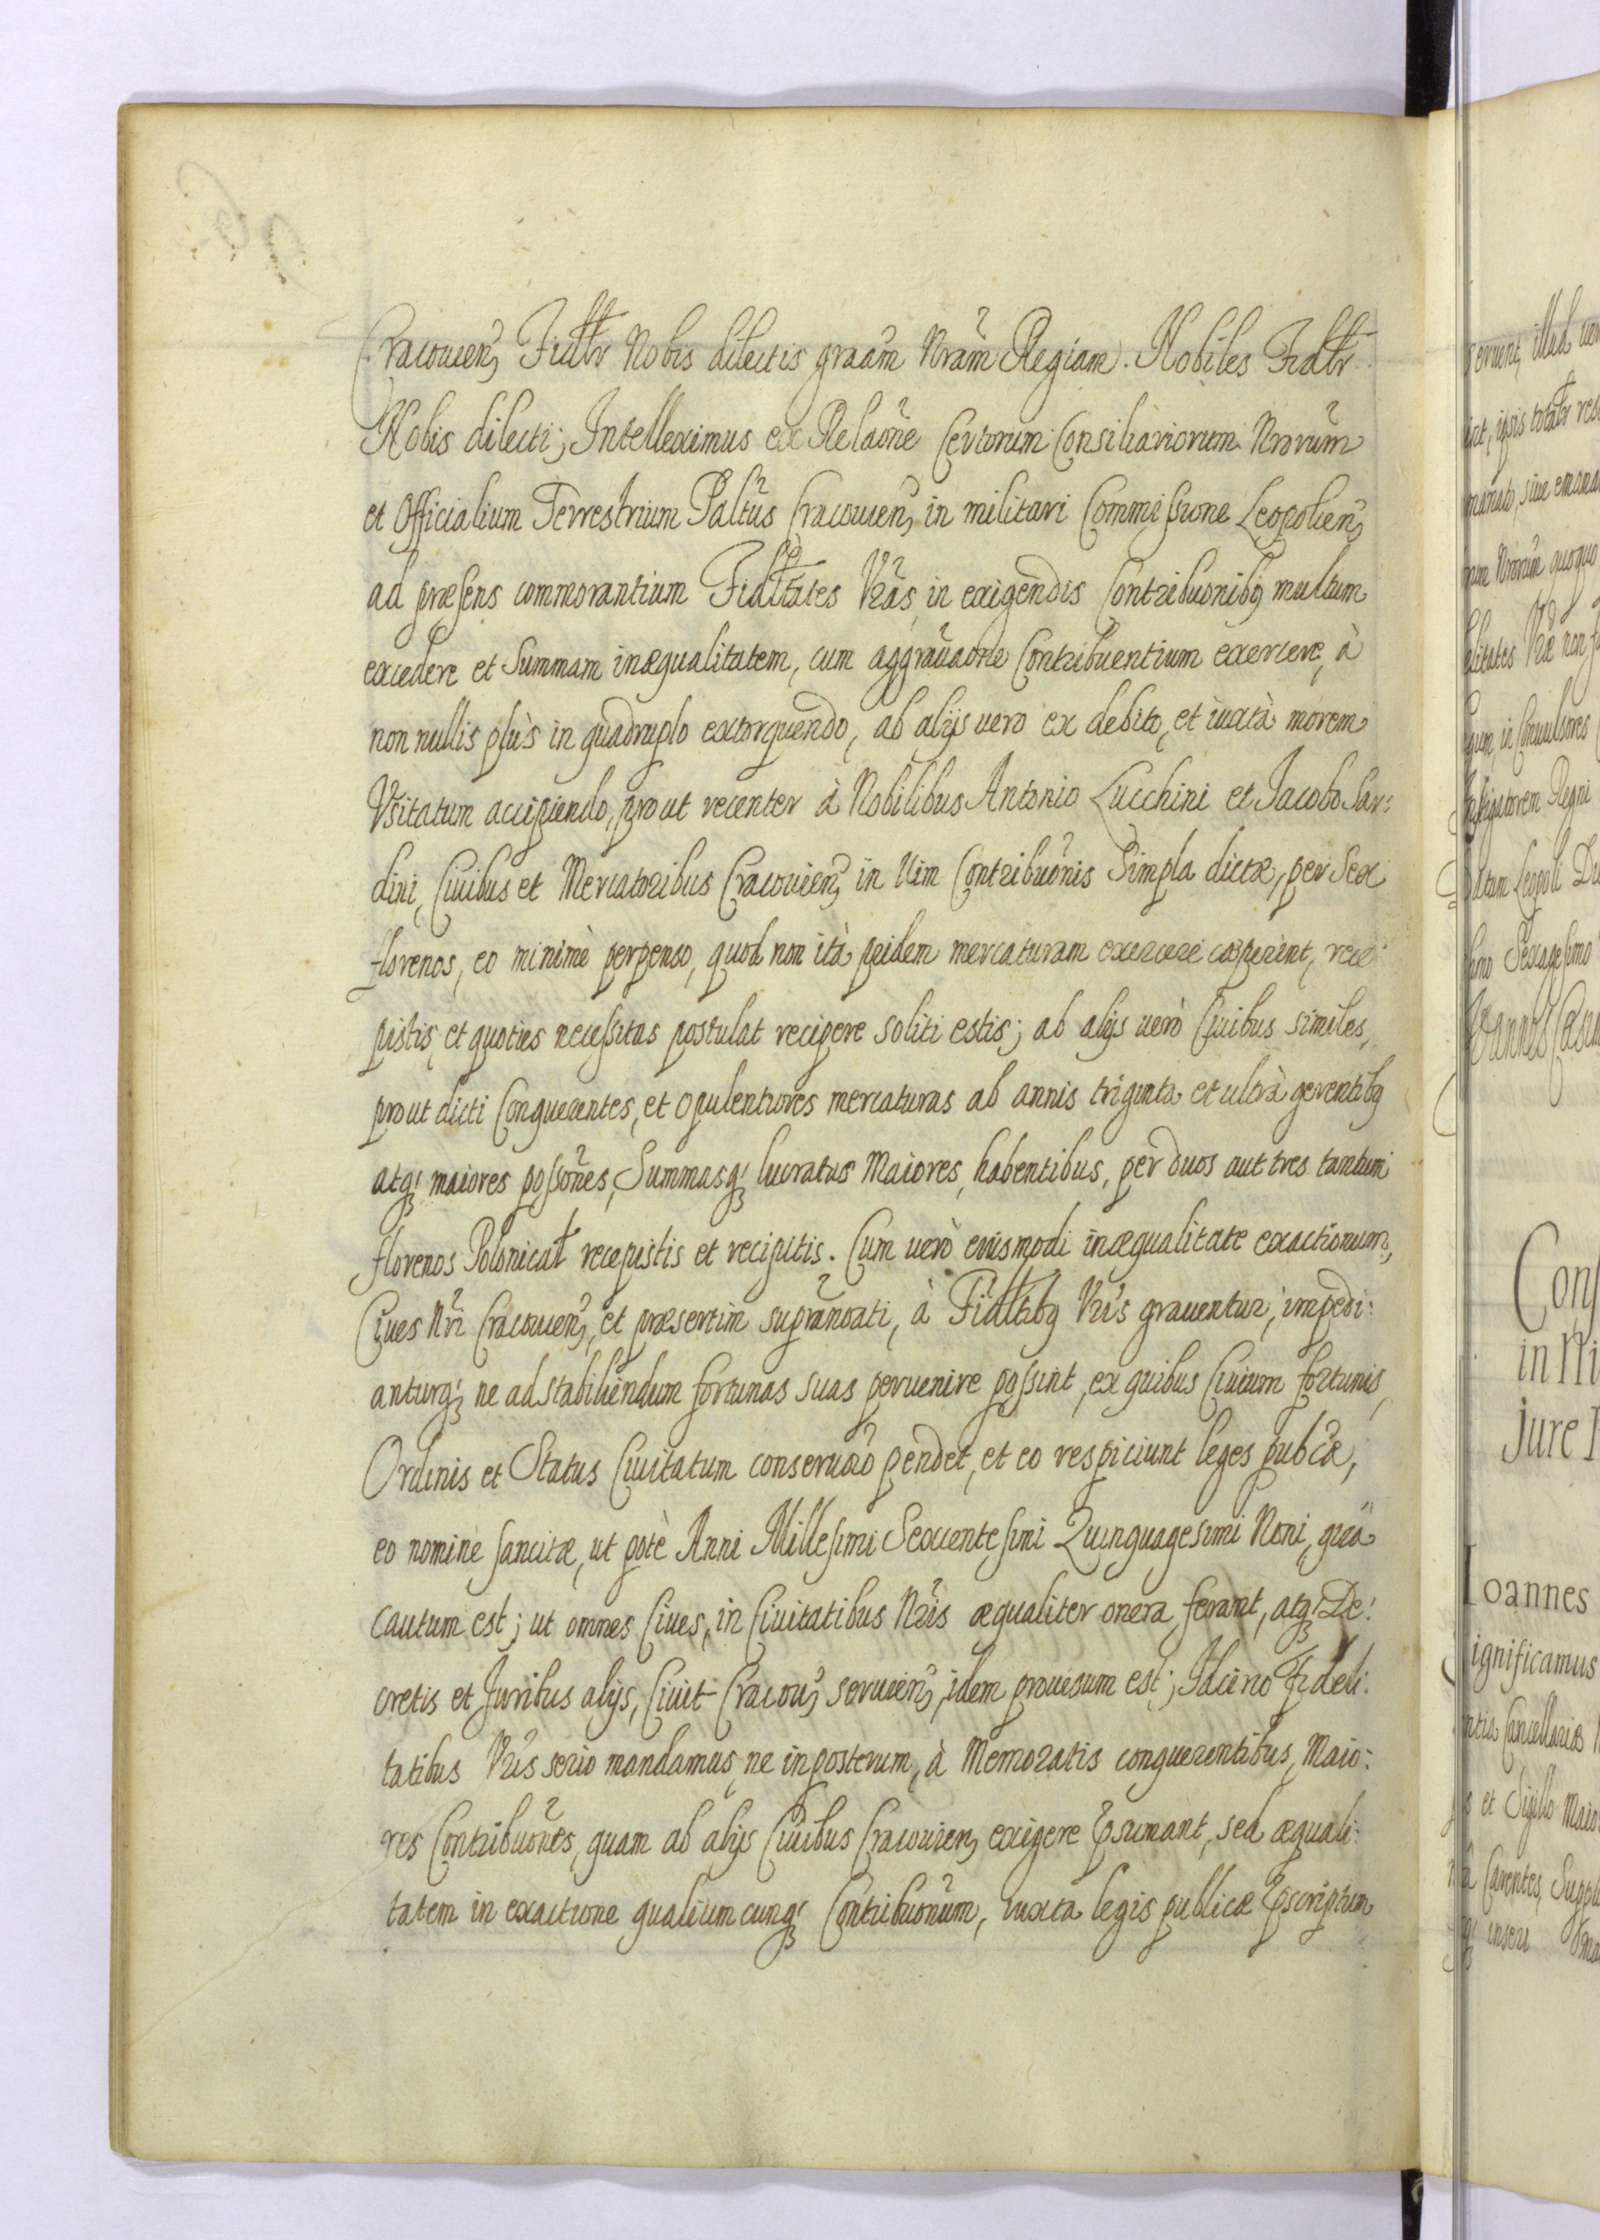 Cracovien, Fidltr Nobis dilectis graam Nram Regiam. Nobiles Fidltr
Nobis dilecti; Intelleximus ex Relaone Certorum Consiliariorum Nrorum
et Officialium Terrestrium Paltus Cracovien, in militari Commissione Leopolien,
ad præsens commorantium Fidltates Vras, in exigendis Contribuonibq multum
excedere et Summam inæqualitatem, cum aggravaone Contribuentium exercere, à
non nullis plùs in quadruplo extorquendo, ab alijs vero ex debito, et iuxtà morem
Vsitatum accipiendo, prout recenter à Nobilibus Antonio Lucchini et Jacobo Sar:
dini, Ciuibus et Mercatoribus Cracouien, in Uim Contribuonis Simpla dictæ, per Sex
florenos, eo minimè perpenso, quod non ità pridem mercaturam exercere cæperint, rece
pistis, et quoties necessitas postulat recipere soliti estis; ab alijs uerò Ciuibus similes,
prout dicti Conquerentes, et opulentiores mercaturas ab annis triginta et ultrà gerentibq
atq maiores possones, Summasq lucratus Maiores, habentibus, per duos aut tres tantum
florenos Polonicat recepistis et recipitis. Cum uerò eiusmodi inæqualitate exactionum,
Ciues Nri Cracouien, et præsertim supranoati, à Fidltibq Vris grauentur, impedi:
anturq ne ad stabiliendum fortunas suas peruenire possint, ex quibus Ciuium fortunis,
Ordinis et Status Ciuitatum conseruao pendet, et eo respiciunt leges pubcæ,
eo nomine sancitæ, ut potè Anni Millesimi Sexcentesimi Quinquagesimi Noni, qua
cautum est; ut omnes Ciues, in Ciuitatibus Nris æqualiter onera ferant, atq De:
cretis et Juribus alijs, Ciuit Cracou, seruien, idem prouisum est; Idcirco Fideli:
tatibus Vris serio mandamus, ne inposterum, à Memoratis conquerentibus, Maio:
res Contribuones, quam ab alijs Ciuibus Cracouien, exigere psumant, sed æquali:
tatem in exactione qualiumcunq Contribuonum, iuxta legis publicæ pscriptum